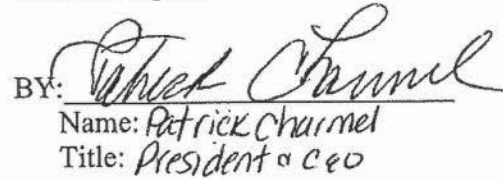 BY: Patrick Charmel
Name: Patrick Charmel
Title: President & CEO